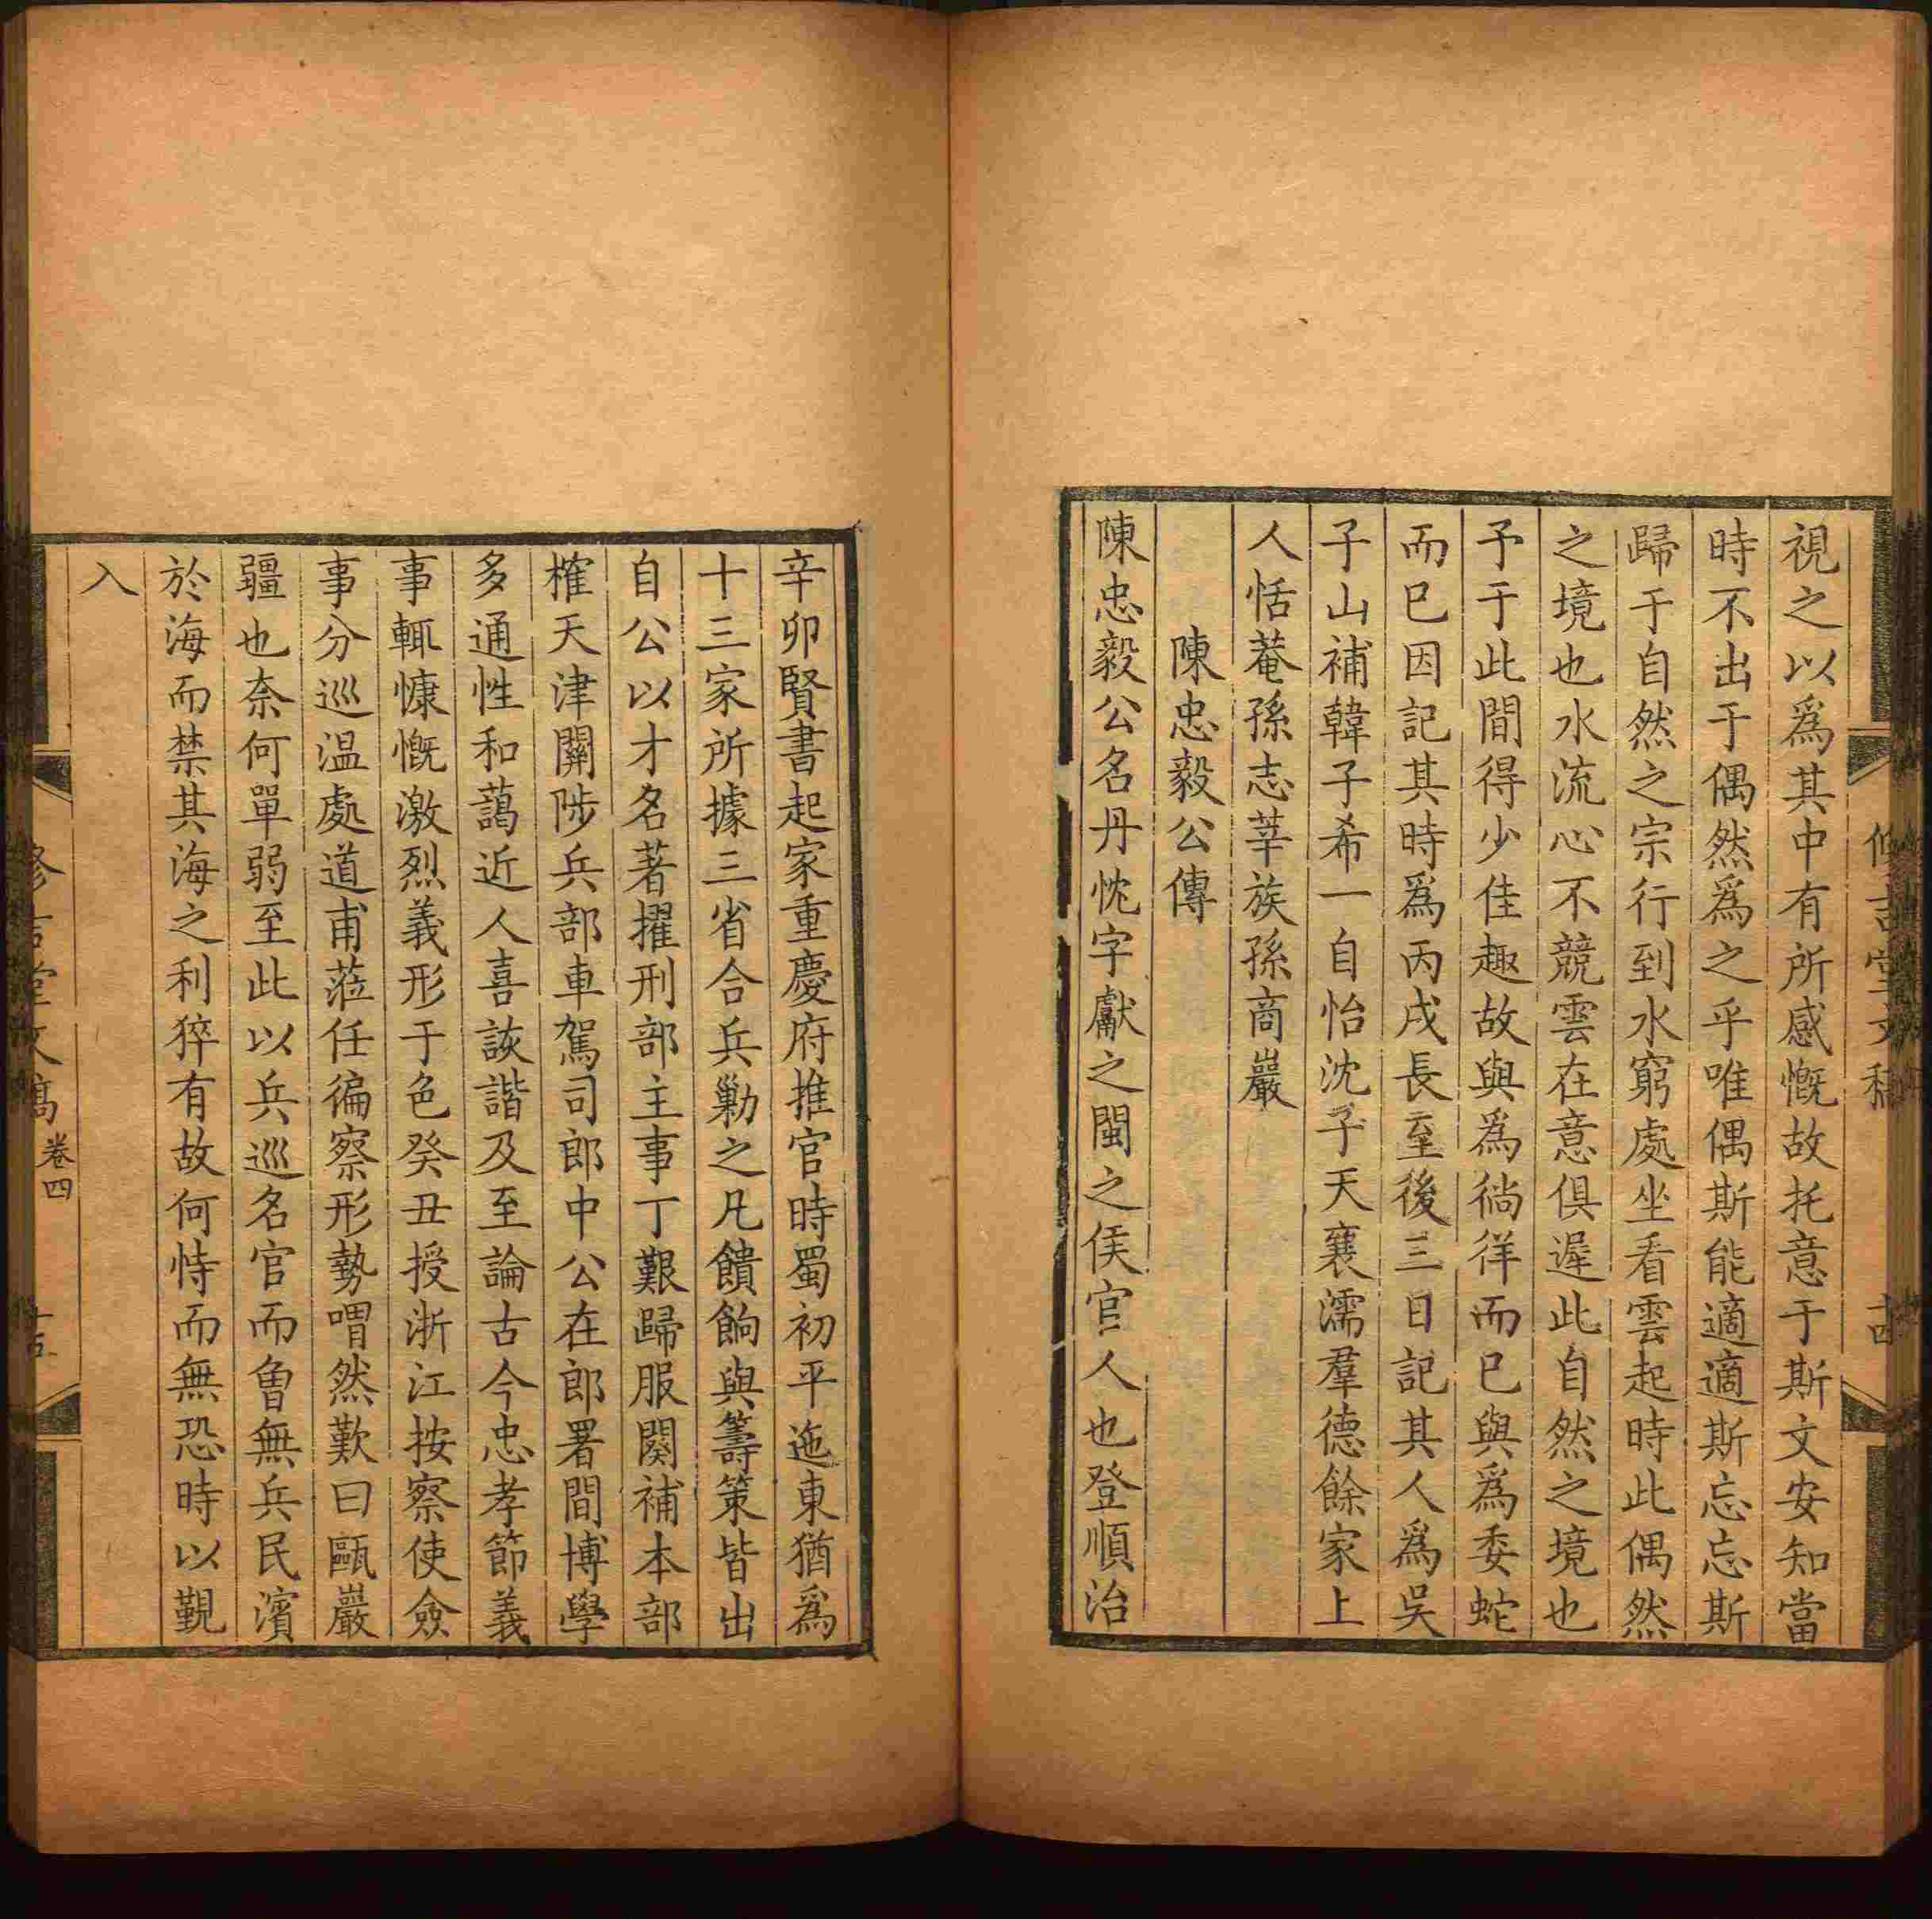 視之以爲其中有所感慨故托意于斯文安知當
時不出于偶然爲之乎唯偶斯能適適斯忘忘斯
歸于自然之宗行到水窮處坐看雲起時此偶然
之境也水流心不競雲在意俱遲此自然之境也
予于此間得少佳趣故與爲徜徉而已與爲委蛇
而已因記其時爲丙戌長至後三日記其人爲吳
子山補韓子希一自怡沈子天襄濡羣德餘家上
人恬菴孫志莘族孫商巖
陳忠毅公傳
陳忠毅公名丹忱字獻之閩之侯官人也登順治
辛卯賢書起家重慶府推官時蜀初平迤東猶爲
十三家所據三省合兵勦之凡饋餉與籌策皆出
自公以才名著擢刑部主事丁艱歸服闋補本部
榷天津關陟兵部車駕司郎中公在郎署間博學
多通性和藹近人喜詼諧及至論古今忠孝節義
事輒慷慨激烈義形于色癸丑授浙江按察使僉
事分巡温處道甫蒞任徧察形勢喟然歎曰甌巖
疆也奈何單弱至此以兵巡名官而曾無兵民濱
於海而禁其海之利猝有故何恃而無恐時以覲
入
卷四